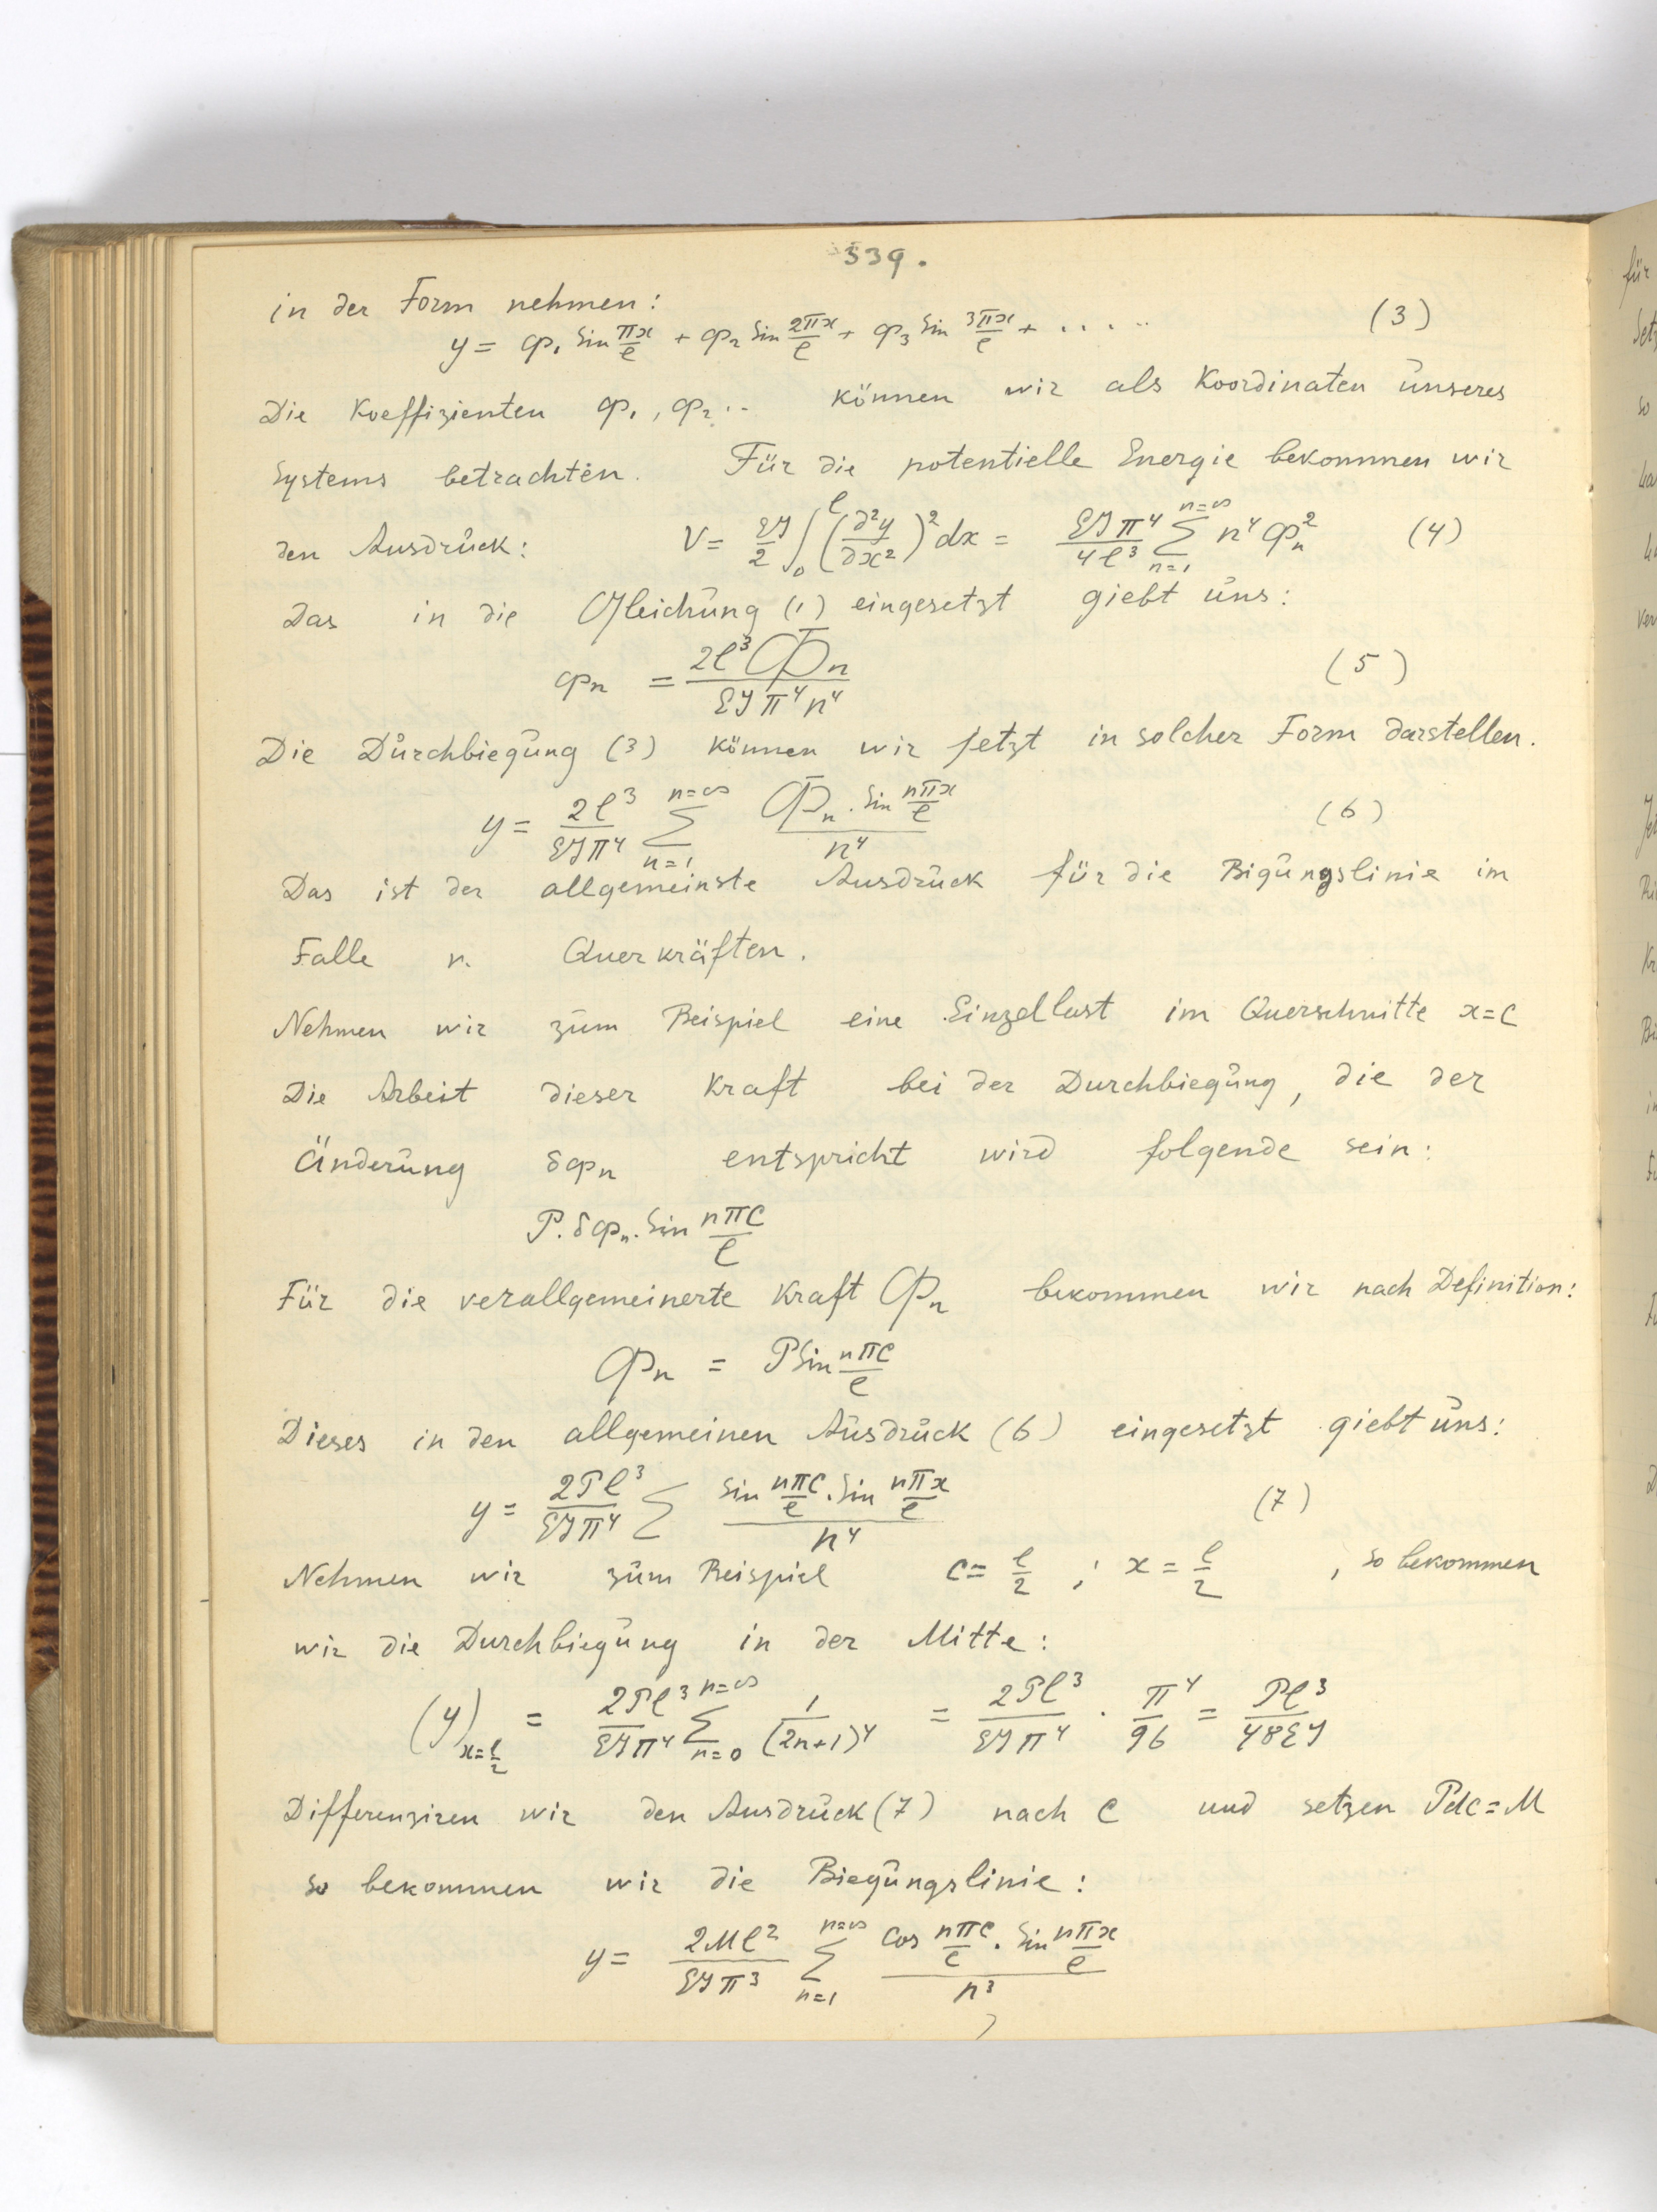 339.
in der Form nehmen:
y = φ₁ sin πx/l + φ₂ sin 2πx/l + φ₃ sin 3πx/l + ..... (3)
Die Koeffizienten φ₁, φ₂ .. können wir als Koordinaten unseres
Systems betrachten. Für die potentielle Energie bekommen wir
den Ausdruck: V = EJ/2 ∫₀ˡ (∂²y/∂x²)² dx = EJπ⁴/4l³ ∑ₙ₌₁ⁿ⁼∞ n⁴ φₙ² (4)
Das in die Gleichung (1) eingesetzt giebt uns:
φₙ = 2l³Φₙ/EJπ⁴n⁴ (5)
Die Durchbiegung (3) können wir jetzt in solcher Form darstellen.
y = 2l³/EJπ⁴ ∑ₙ₌₁ⁿ⁼∞ Φₙ . sin nπx/l / n⁴ (6)
Das ist der allgemeinste Ausdruck für die Bigungslinie im
Falle n. Querkräften.
Nehmen wir zum Beispiel eine Einzellast im Querschnitte x=c
Die Arbeit dieser Kraft bei der Durchbiegung, die der
Änderung δφₙ entspricht wird folgende sein:
P. δφₙ. sin nπc/l
Für die verallgemeinerte Kraft Φₙ bekommen wir nach Definition:
Φₙ = P sin nπc/l
Dieses in den allgemeinen Ausdruck (6) eingesetzt giebt uns:
y = 2Pl³/EJπ⁴ ∑ sin nπc/l . sin nπx/l / n⁴ (7)
Nehmen wir zum Beispiel c = l/2 ; x = l/2 , so bekommen
wir die Durchbiegung in der Mitte:
(y)ₓ₌l/2 = 2Pl³/EJπ⁴ ∑ₙ₌₀ⁿ⁼∞ 1/(2n+1)⁴ = 2Pl³/EJπ⁴ . π⁴/96 = Pl³/48EJ
Differenziren wir den Ausdruck (7) nach c und setzen Pdc = M
so bekommen wir die Biegungslinie:
y = 2Ml²/EJπ³ ∑ₙ₌₁ⁿ⁼∞ cos nπc/l . sin nπx/l / n³